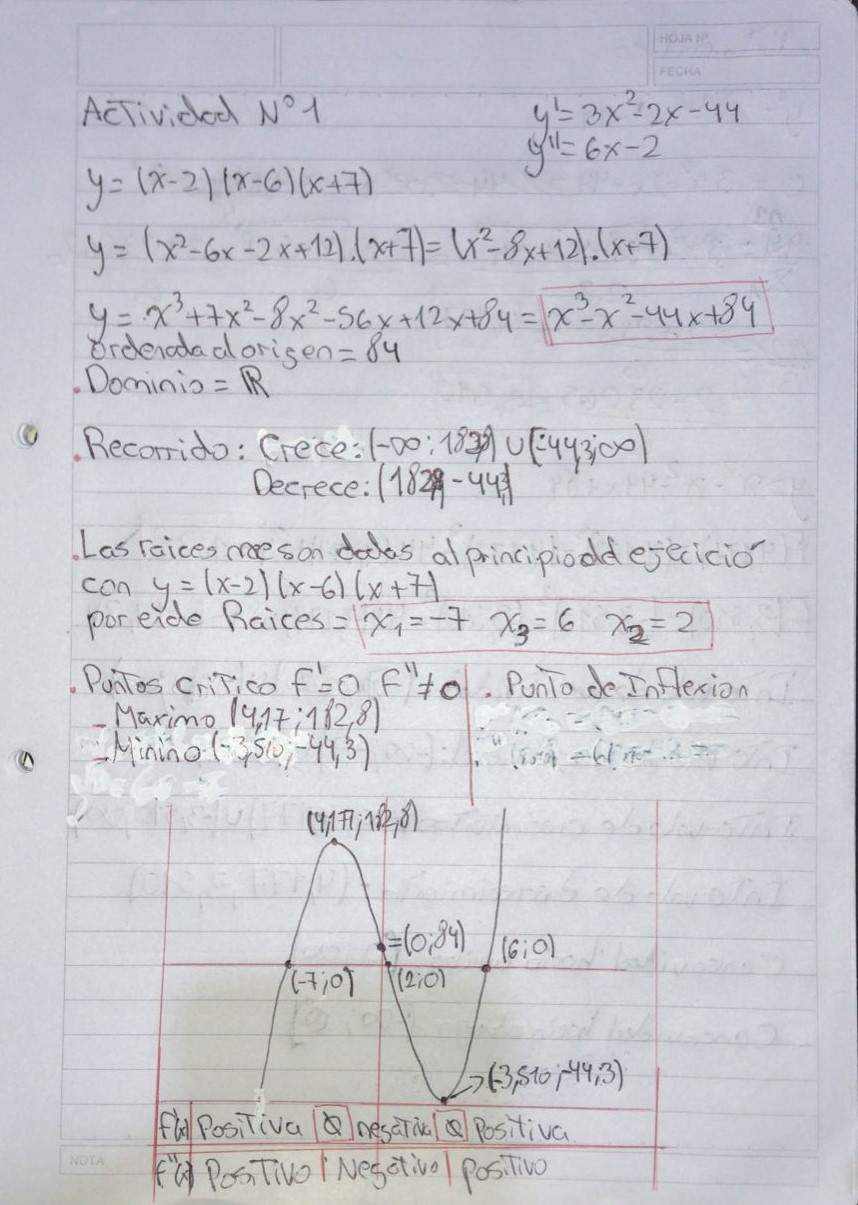 HOJA Nº
FECHA
Actividad Nº1
y'=3x²-2x-44
y''=6x-2
y=(x-2)(x-6)(x+7)
y=(x²-6x-2x+12).(x+7)=(x²-8x+12).(x+7)
y=x³+7x²-8x²-56x+12x+84=x³-x²-44x+84
ordenada al origen=84
.Dominio=ℝ
.Recorrido: Crece:(-∞; ) U(-44,3;∞)
Decrece:(
.Las raices me son dadas al principio del ejecició
con y=(x-2)(x-6)(x+7)
por ende Raices= x₁=-7 x₃=6 x₂=2
.Puntos Critico f'=0 f''≠0
-Maximo (4,17;182,8)
-Minino(-3,510;-44,3)
.Punto de Inflexion
(4,177;182,8)
=(0;84)
(6;0)
(-7;0)
(2;0)
(-3,510;-44,3)
f'(x) Positiva 0 negativa 0 Positiva
f''(x) Positivo | Negativo | positivo
NOTA